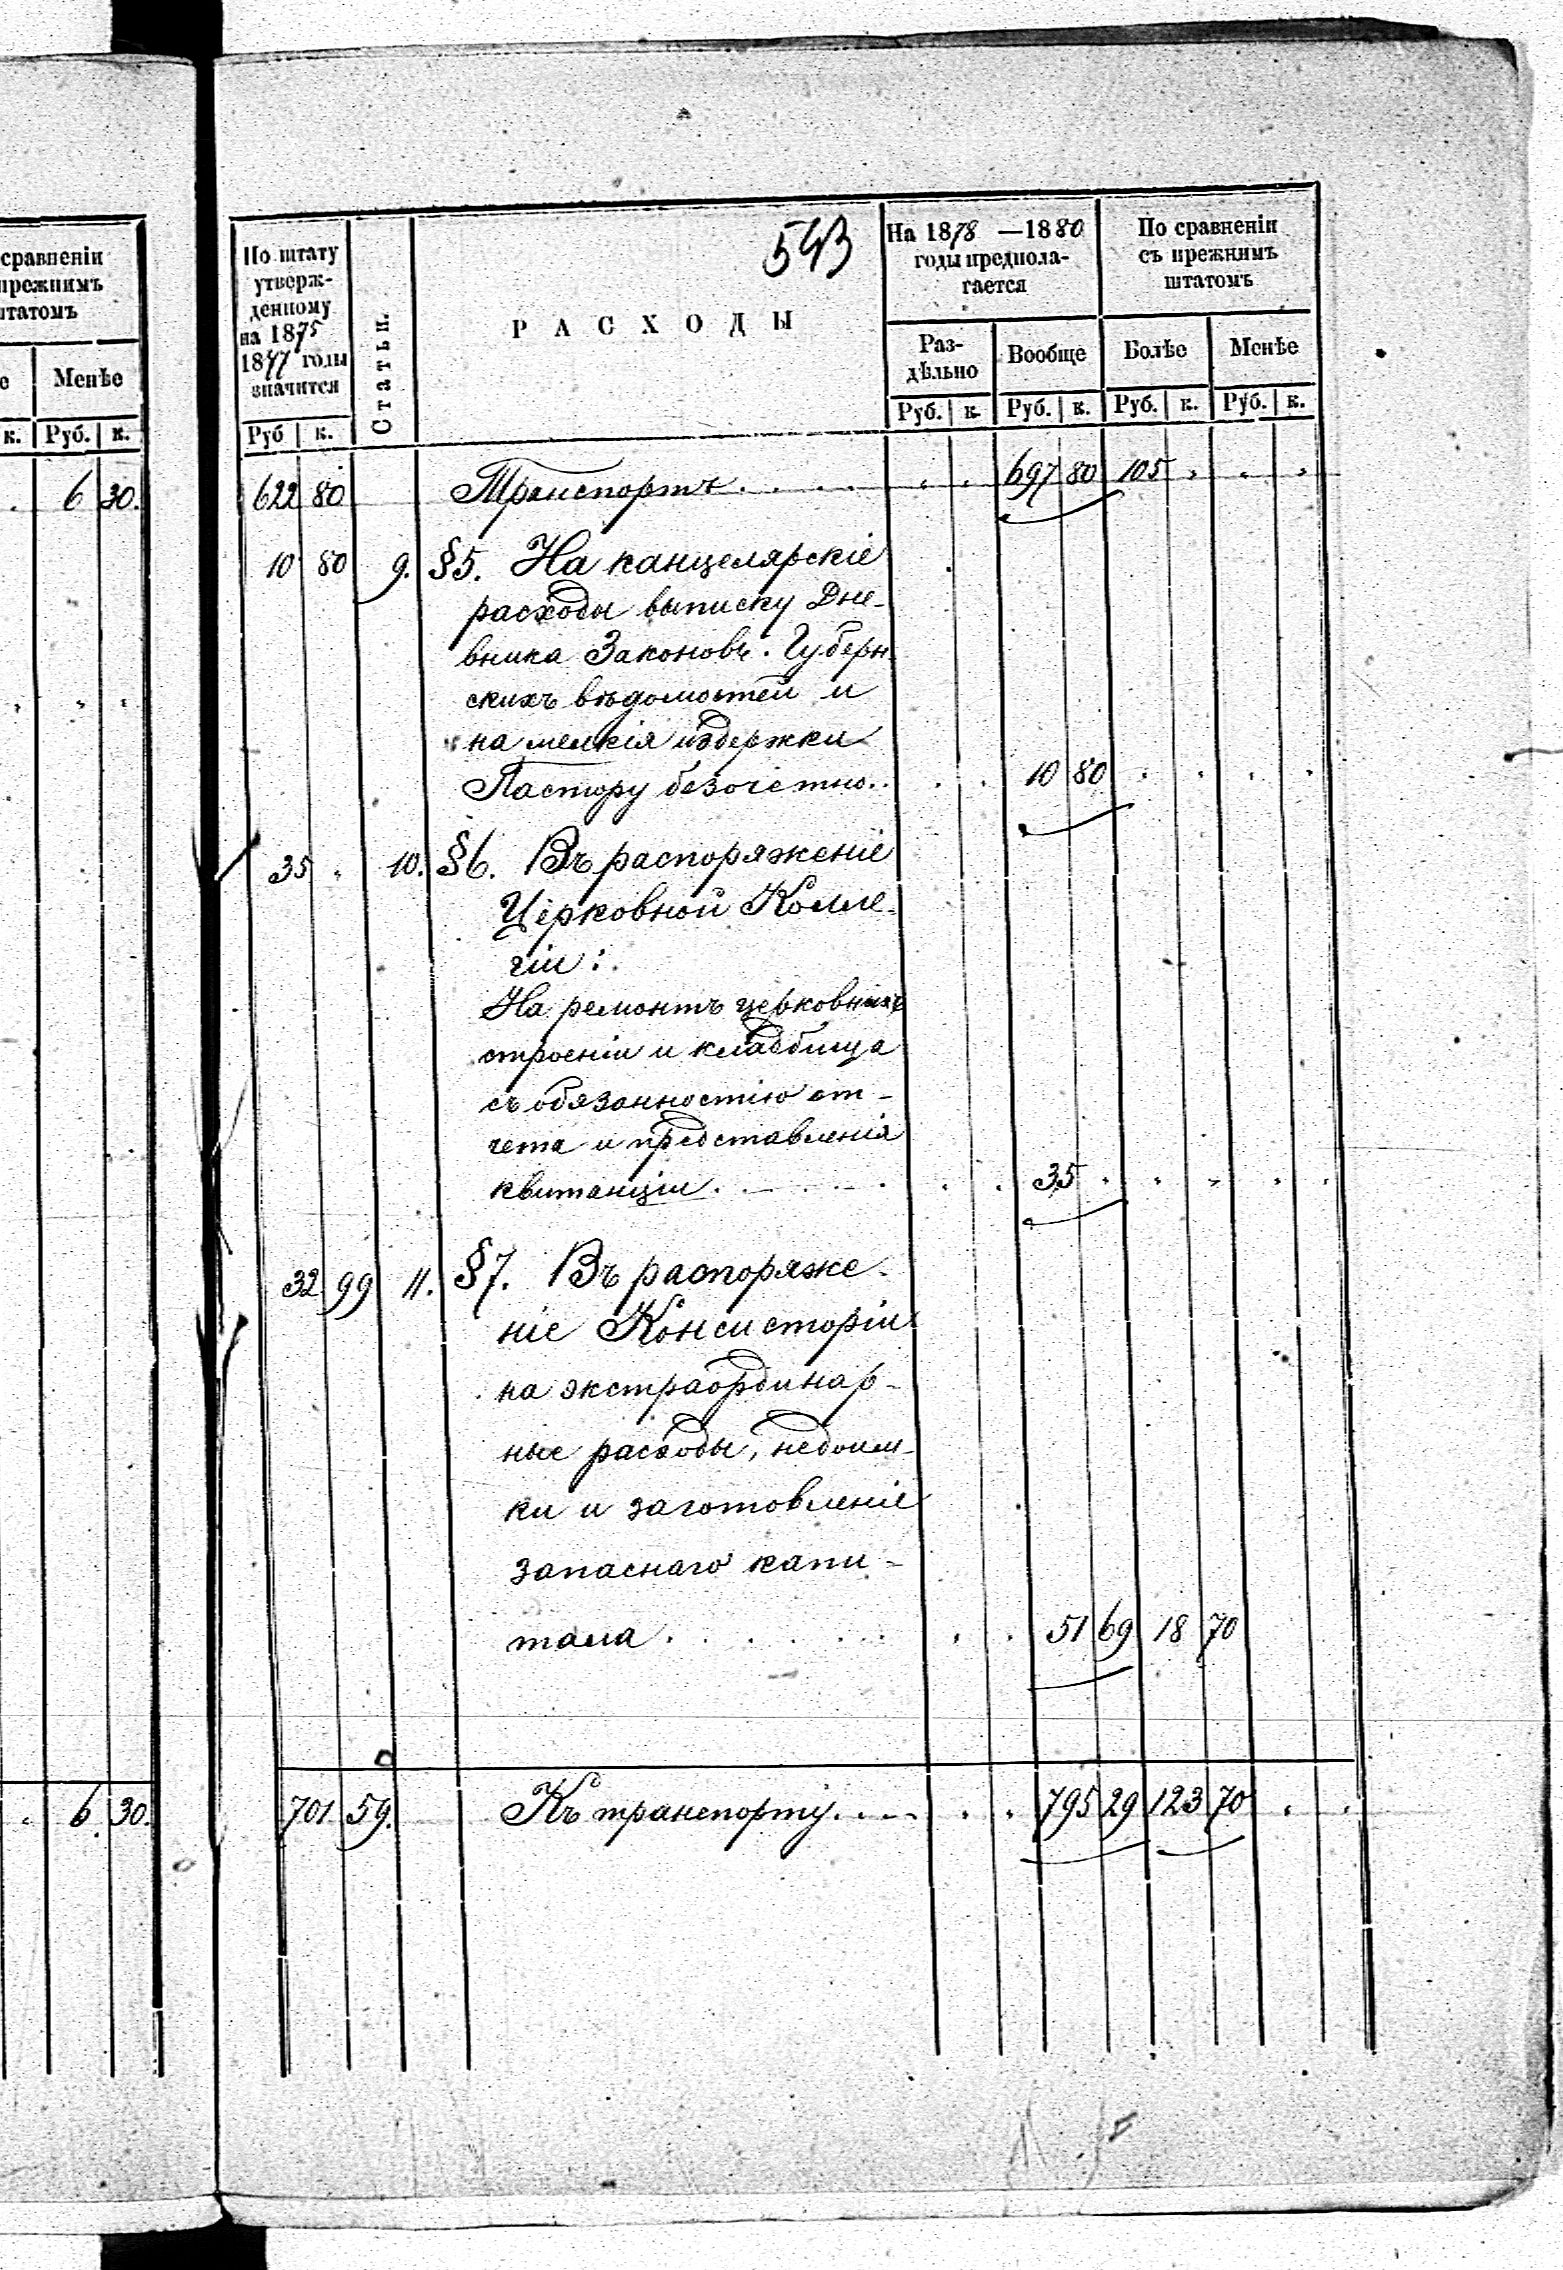 сравненіи
прежнимъ
штатомъ
е Менѣе
к. Руб. к.
6 30.
6. 30.
543
По штату
утверж-
денному
на 1875
1877 годы
значится
Руб к.
Статьи.
РАСХОДЫ
На 1878 —1880
годы предпола-
гается
Раз-
дѣльно
Вообще
Руб. к. Руб. к.
По сравненіи
съ прежнимъ
штатомъ
Болѣе Менѣе
Руб. к. Руб. к.
622 80 Транспортъ . . . . 697 80 105 . . .
10 80 9. §5. На канцелярскіе
расходы выписку Дне-
вника Законовъ. Губерн
скихъ вѣдомостей и
на мелкія издержки
Пастору безочетно . . 10 80 . . . .
35 . 10. §6. Въ распоряженіе
Церковной Колле-
гіи :
На ремонтъ церковныхъ
строеніи и кладбища
съ обязанностію от-
чета и представленія
квитанціи . . . . . 35 . . . . .
32 99 11. §7. Въ распоряже-
ніе Консисторіи
на экстраординар-
ные расходы, недоим-
ки и заготовленіе
запаснаго капи-
тала . . . . . . 51 69 18 70
701 59. Къ транспорту . . . . . 795 29 123 70 . .